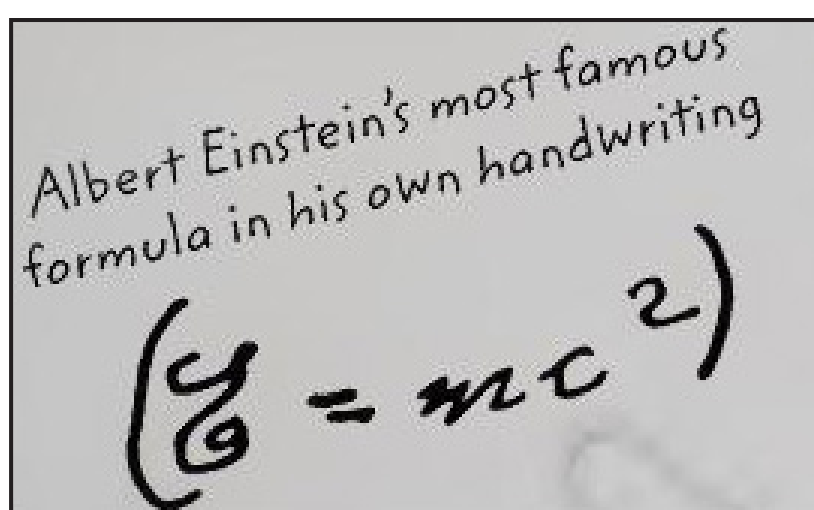 Albert Einstein's most famous
formula in his own handwriting
(E = mc²)